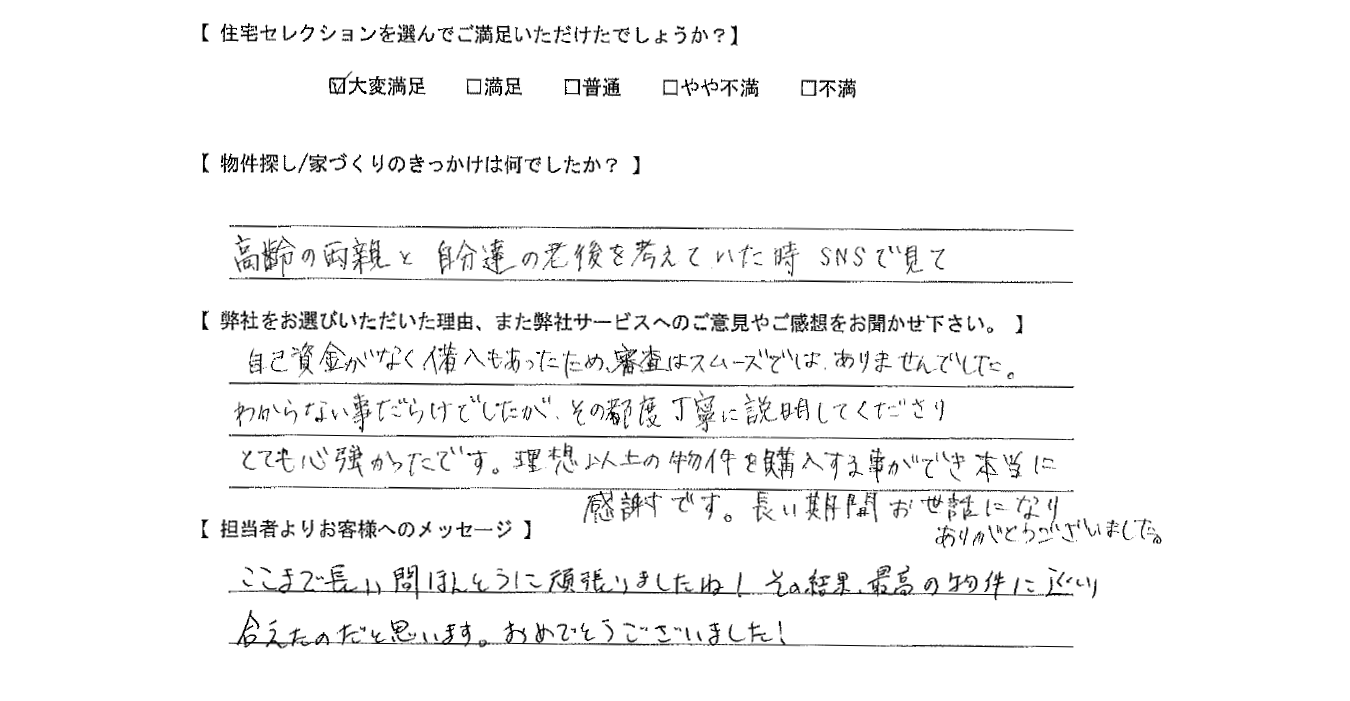 【 住宅セレクションを選んでご満足いただけたでしょうか？】
☑大変満足 □満足 □普通 □やや不満 □不満
【 物件探し/家づくりのきっかけは何でしたか？ 】
高齢の両親と 自分達の老後を考えていた時 SNSで見て
【 弊社をお選びいただいた理由、また弊社サービスへのご意見やご感想をお聞かせ下さい。 】
自己資金がなく借入もあったため、審査はスムーズでは、ありませんでした。
わからない事だらけでしたが、その都度丁寧に説明してくださり
とても心強かったです。理想以上の物件を購入する事ができ本当に
感謝です。長い期間お世話になり
ありがとうございました。
【 担当者よりお客様へのメッセージ 】
ここまで長い間ほんとうに頑張りましたね！その結果、最高の物件に巡り
合えたのだと思います。おめでとうございました！